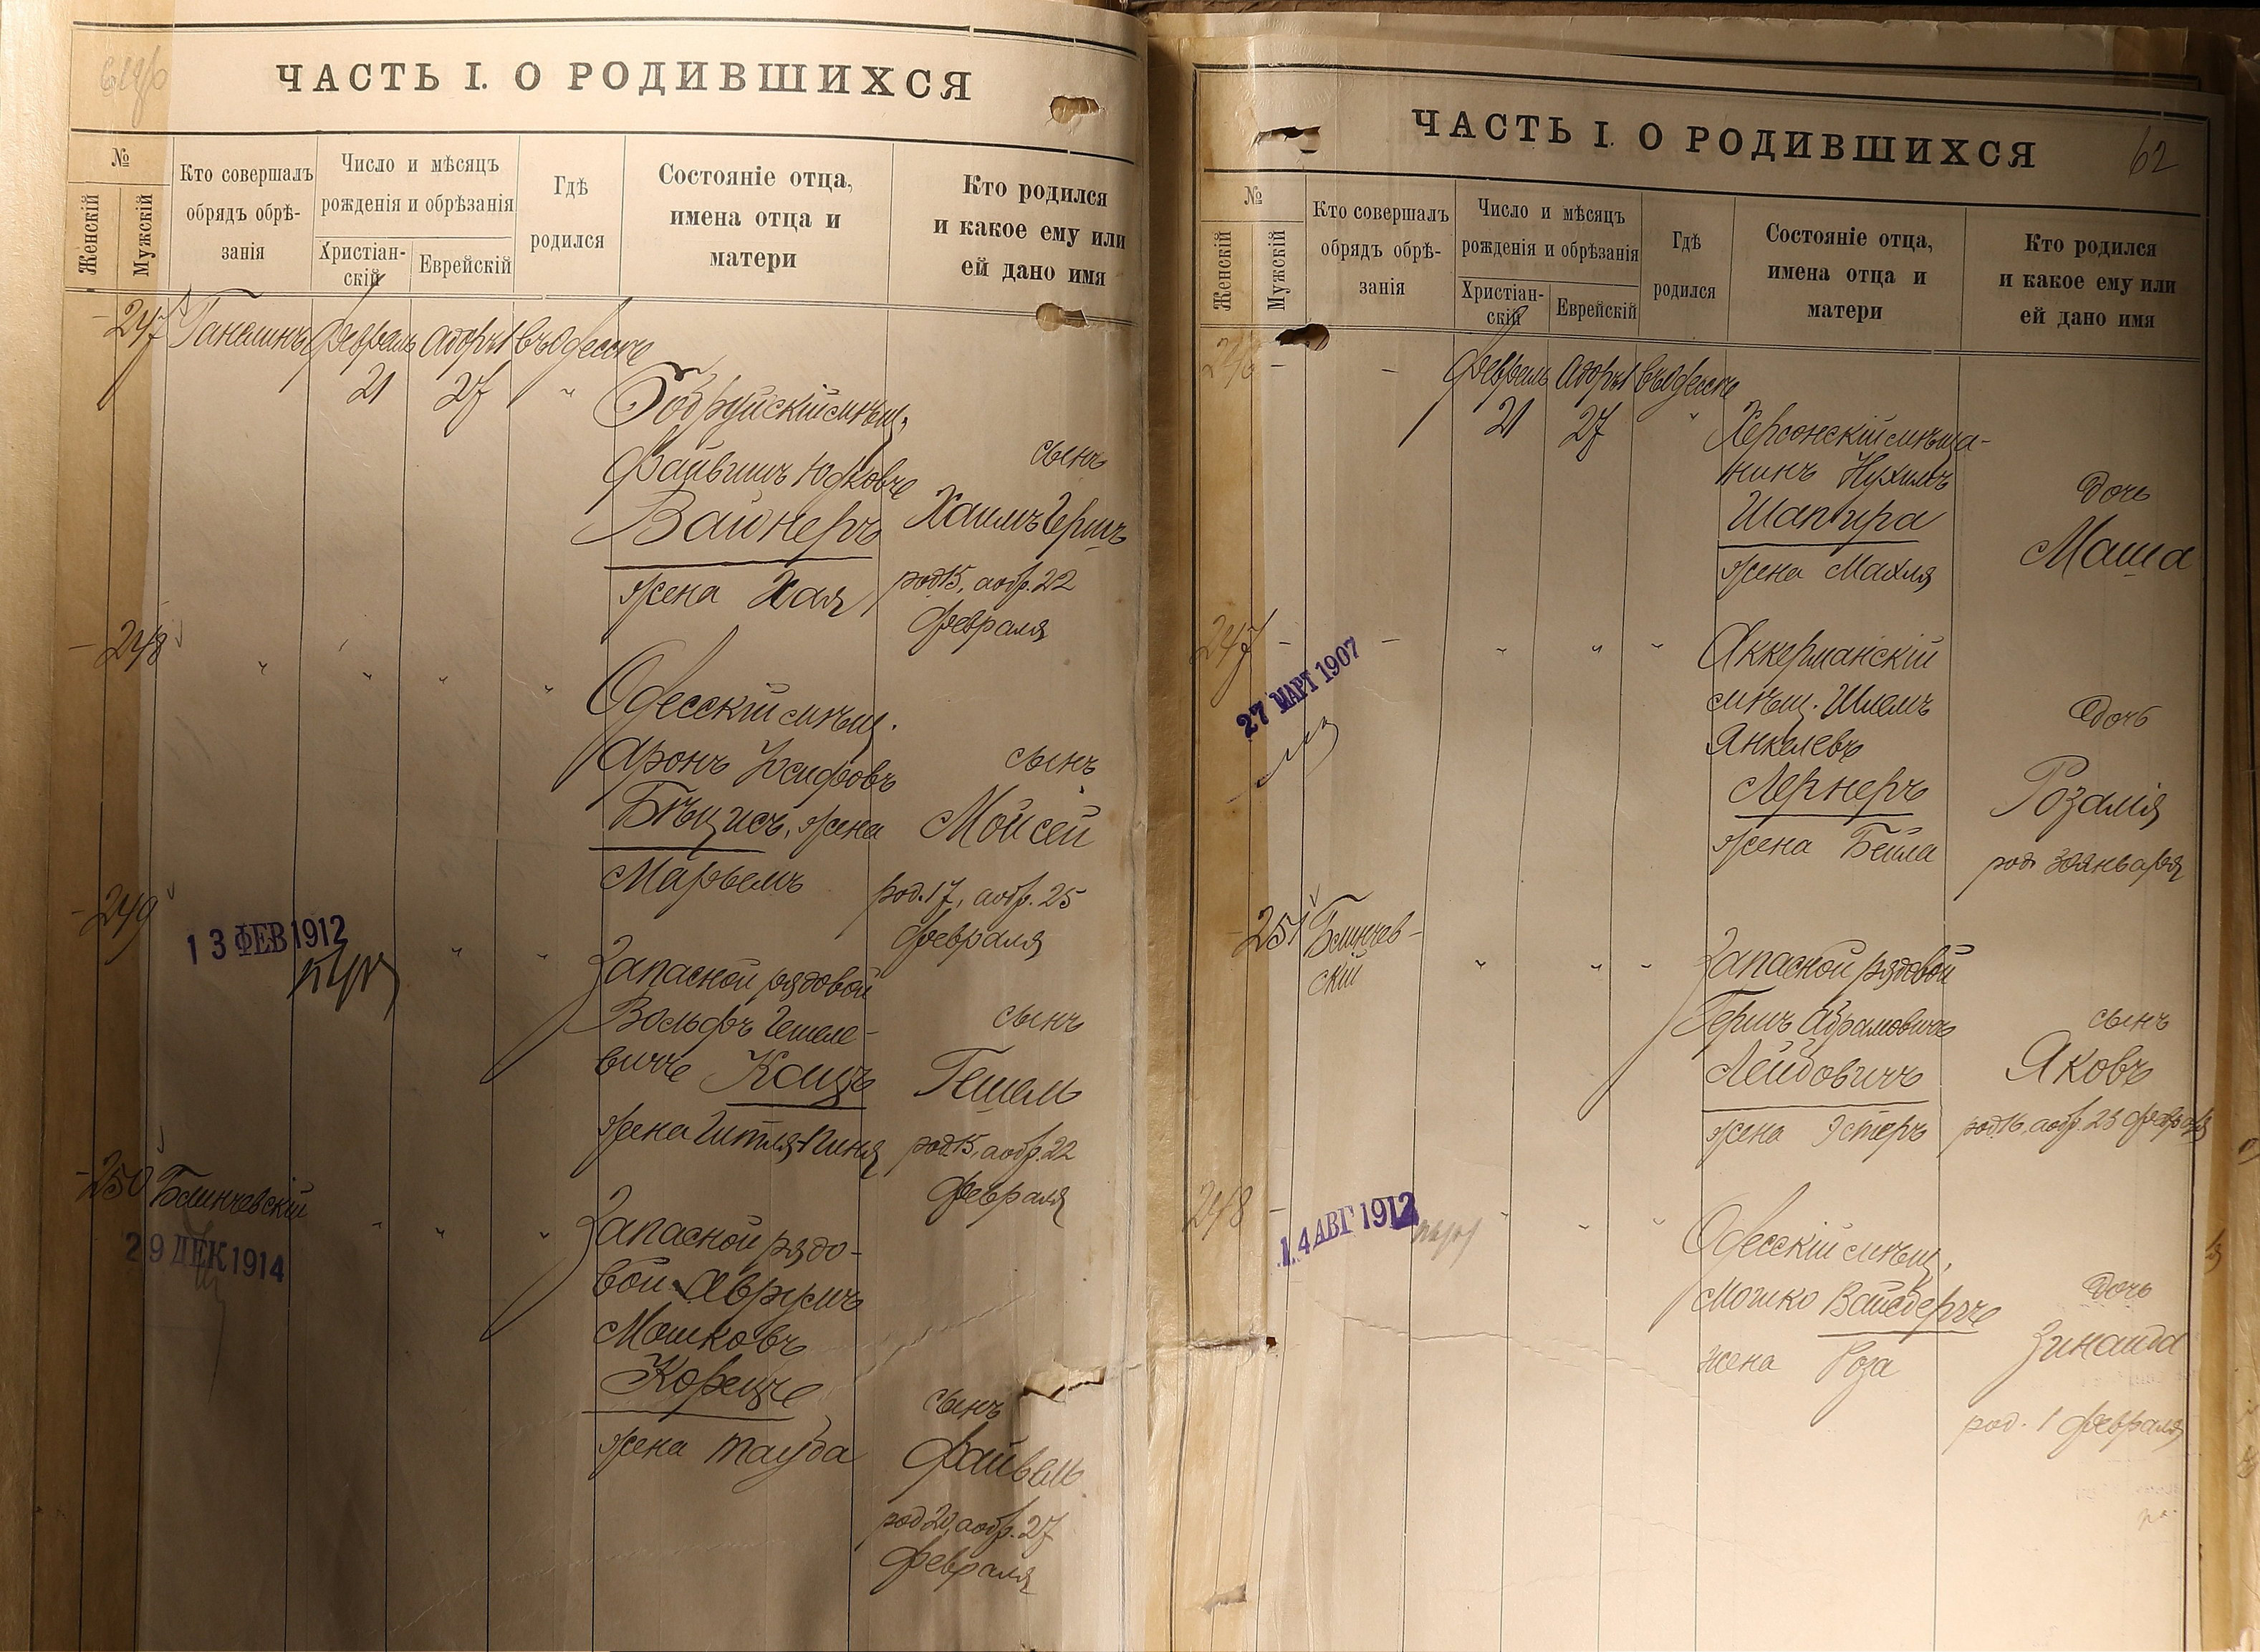 ЧАСТЬ I. О РОДИВШИХСЯ
№
Женскій
Мужскій
Кто совершалъ
обрядъ обрѣ-
занія
Число и мѣсяцъ
рожденія и обрѣзанія
Христіан-
скій
Еврейскій
Гдѣ
родился
Состояніе отца,
имена отца и
матери
Кто родился
и какое ему или
ей дано имя
247 Февраль Адоръ I въ Одессѣ
21 27 "
Бобруйскій мѣщ.
Файвишъ Юдковъ
Вайнеръ
жена Хая
сынъ
Хаимъ Гершъ
род. 15, а обр. 22
февраля
248 " " " "
Одесскій мѣщ.
Аронъ Іосифовъ
Бѣцисъ, жена
Марьемъ
сынъ
Мойсей
род. 17, а обр. 25
февраля
249 " "
13 ФЕВ 1912
Запасной рядовой
Вольфъ Гешеле-
вичъ Кацъ
жена Гитля-Пиня
сынъ
Гешель
род. 15, а обр. 22
февраля
250 Блинчевскій " " "
29 ДЕК 1914
Запасной рядо-
вой Аврумъ
Мошковъ
Корецъ
жена Тауба
сынъ
Файвель
род. 20, а обр. 27
февраля
ЧАСТЬ I. О РОДИВШИХСЯ
62
№
Женскій
Мужскій
Кто совершалъ
обрядъ обрѣ-
занія
Число и мѣсяцъ
рожденія и обрѣзанія
Христіан-
скій
Еврейскій
Гдѣ
родился
Состояніе отца,
имена отца и
матери
Кто родился
и какое ему или
ей дано имя
246 - - Февраль Адоръ I въ Одессѣ
21 27 "
Херсонскій мѣща-
нинъ Нухимъ
Шапира
жена Махля
дочь
Маша
247 - - " " "
27 МАРТ 1907
Аккерманскій
мѣщ. Шлемъ
Янкелевъ
Лернеръ
жена Бейла
дочь
Розалія
род. 30 января
251 Блинчев-
скій " " "
Запасной рядовой
Гершъ Абрамовичъ
Лейбовичъ
жена Эстеръ
сынъ
Яковъ
род. 16, а обр. 23 февраля
248 - " " "
14 АВГ 1912
Одесскій мѣщ.
Мошко Вайсбергъ
жена Роза
дочь
Зинаида
род. 1 февраля